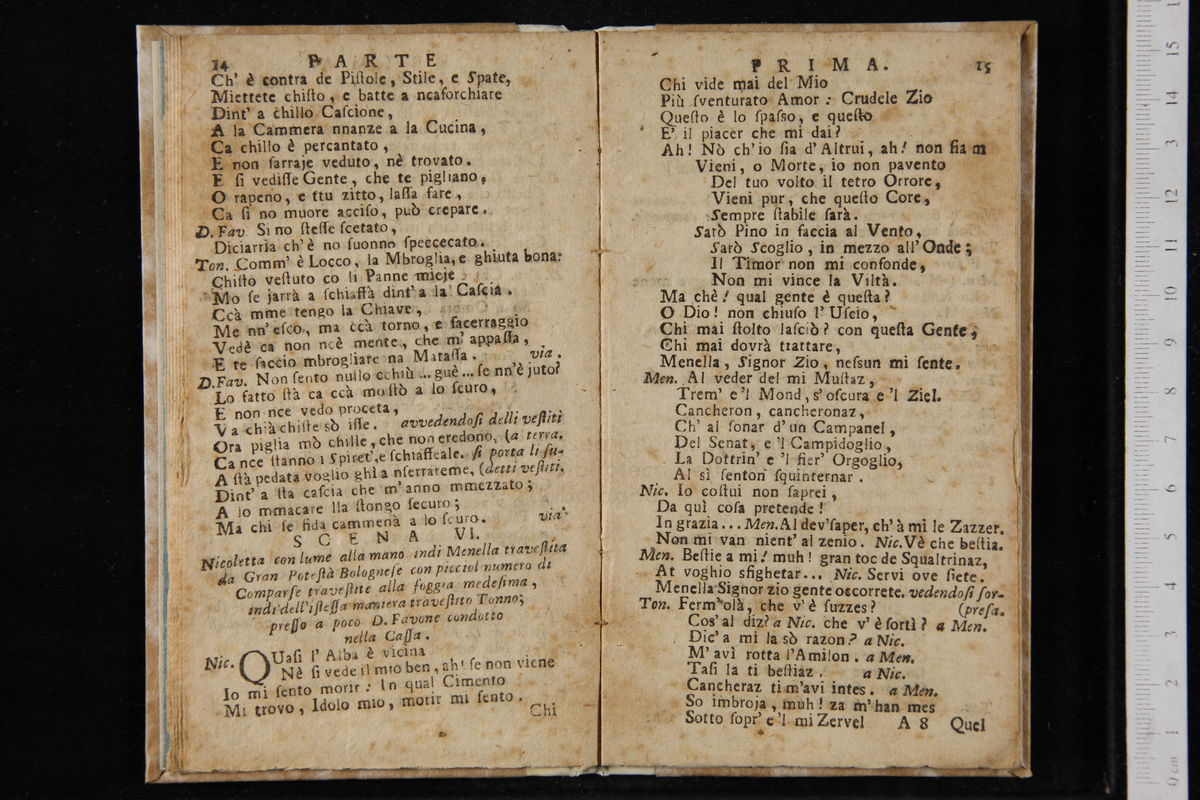 14 PARTE
Ch' è contra de Piſtole, Stile, e Spate,
Miettete chiſto, e batte a ncaforchiare
Dint' a chillo Caſcione,
A la Cammera nnanze a la Cucina,
Ca chillo è percantato,
E non ſarraje veduto, nè trovato.
E ſi vediſſe Gente, che te pigliano,
O rapeno, e ttu zitto, laſſa fare,
Ca ſi no muore acciſo, può crepare.
D. Fav. Si no ſteſſe ſcetato,
Diciarria ch' è no ſuonno ſpeccecato.
Ton. Comm' è Locco, la Mbroglia, e ghiuta bona:
Chiſto veſtuto co li Panne mieje
Mo ſe jarrà a ſchiaffà dint' a la Caſcia.
Ccà mme tengo la Chiave,
Me nn' eſco, ma ccà torno, e ſacerraggio
Vedè ca non ncè mente, che m' appaſſa,
E te faccio mbrogliare na Mataſſa. via.
D.Fav. Non ſento nullo cchiù ... guè ... ſe nn'è juto?
Lo fatto ſtà ca ccà moſtò a lo ſcuro,
E non nce vedo proceta,
Va chià chiſte sò iſſe. avvedendoſi delli veſtiti
Ora piglia mò chille, che non eredono, (a terra.
Ca nce ſtanno i Spiret', e ſchiaffeale. ſi porta li ſu-
A ſtà pedata voglio ghì a nſerrareme, (detti veſtiti.
Dint' a ſta caſcia che m' anno mmezzato;
A lo mmacare lla ſtongo ſecuro;
Ma chi ſe fida cammenà a lo ſcuro. via.
SCENA VI.
Nicoletta con lume alla mano indi Menella traveſtita
da Gran Poteſtà Bologneſe con picciol numero di
Comparſe traveſtite alla foggia medeſima,
indi dell' iſteſſa maniera traveſtito Tonno;
preſſo a poco D. Favone condotto
nella Caſſa.
Nic. QUaſi l' Alba è vicina
Nè ſi vede il mio ben, ah! ſe non viene
Io mi ſento morir: In qual Cimento
Mi trovo, Idolo mio, morir mi ſento.
Chi
PRIMA. 15
Chi vide mai del Mio
Più ſventurato Amor: Crudele Zio
Queſto è lo ſpaſso, e queſto
E' il piacer che mi dai?
Ah! Nò ch'io ſia d'Altrui, ah! non ſia m
Vieni, o Morte, io non pavento
Del tuo volto il tetro Orrore,
Vieni pur, che queſto Core,
Sempre ſtabile ſarà.
Sarò Pino in faccia al Vento,
Sarò Scoglio, in mezzo all'Onde;
Il Timor non mi confonde,
Non mi vince la Viltà.
Ma chè! qual gente è queſta?
O Dio! non chiuſo l'Uſcio,
Chi mai ſtolto laſciò? con queſta Gente,
Chi mai dovrà trattare,
Menella, Signor Zio, neſsun mi ſente.
Men. Al veder del mi Muſtaz,
Trem' e 'l Mond, s' oſcura e 'l Ziel.
Cancheron, cancheronaz,
Ch' al ſonar d' un Campanel,
Del Senat, e 'l Campidoglio,
La Dottrin' e 'l fier' Orgoglio,
Al sì ſenton ſquinternar.
Nic. Io coſtui non ſaprei,
Da quì coſa pretende!
In grazia... Men. Al dev'ſaper, ch' à mi le Zazzer.
Non mi van nient' al zenio. Nic. Vè che beſtia.
Men. Beſtie a mi! muh! gran toc de Squaltrinaz,
At voghio sfighetar... Nic. Servi ove ſiete.
Menella Signor zio gente occorrete. vedendoſi ſor-
Ton. Ferm' olà, che v' è ſuzzes? (preſa.
Coſ' al diz? a Nic. che v' è ſortì? a Men.
Dic' a mi la sò razon? a Nic.
M' avì rotta l'Amilon. a Men.
Taſi la ti beſtiaz. a Nic.
Cancheraz ti m'avi intes. a Men.
So imbroja, muh! za m'han mes
Sotto ſopr' e 'l mi Zervel A 8 Quel